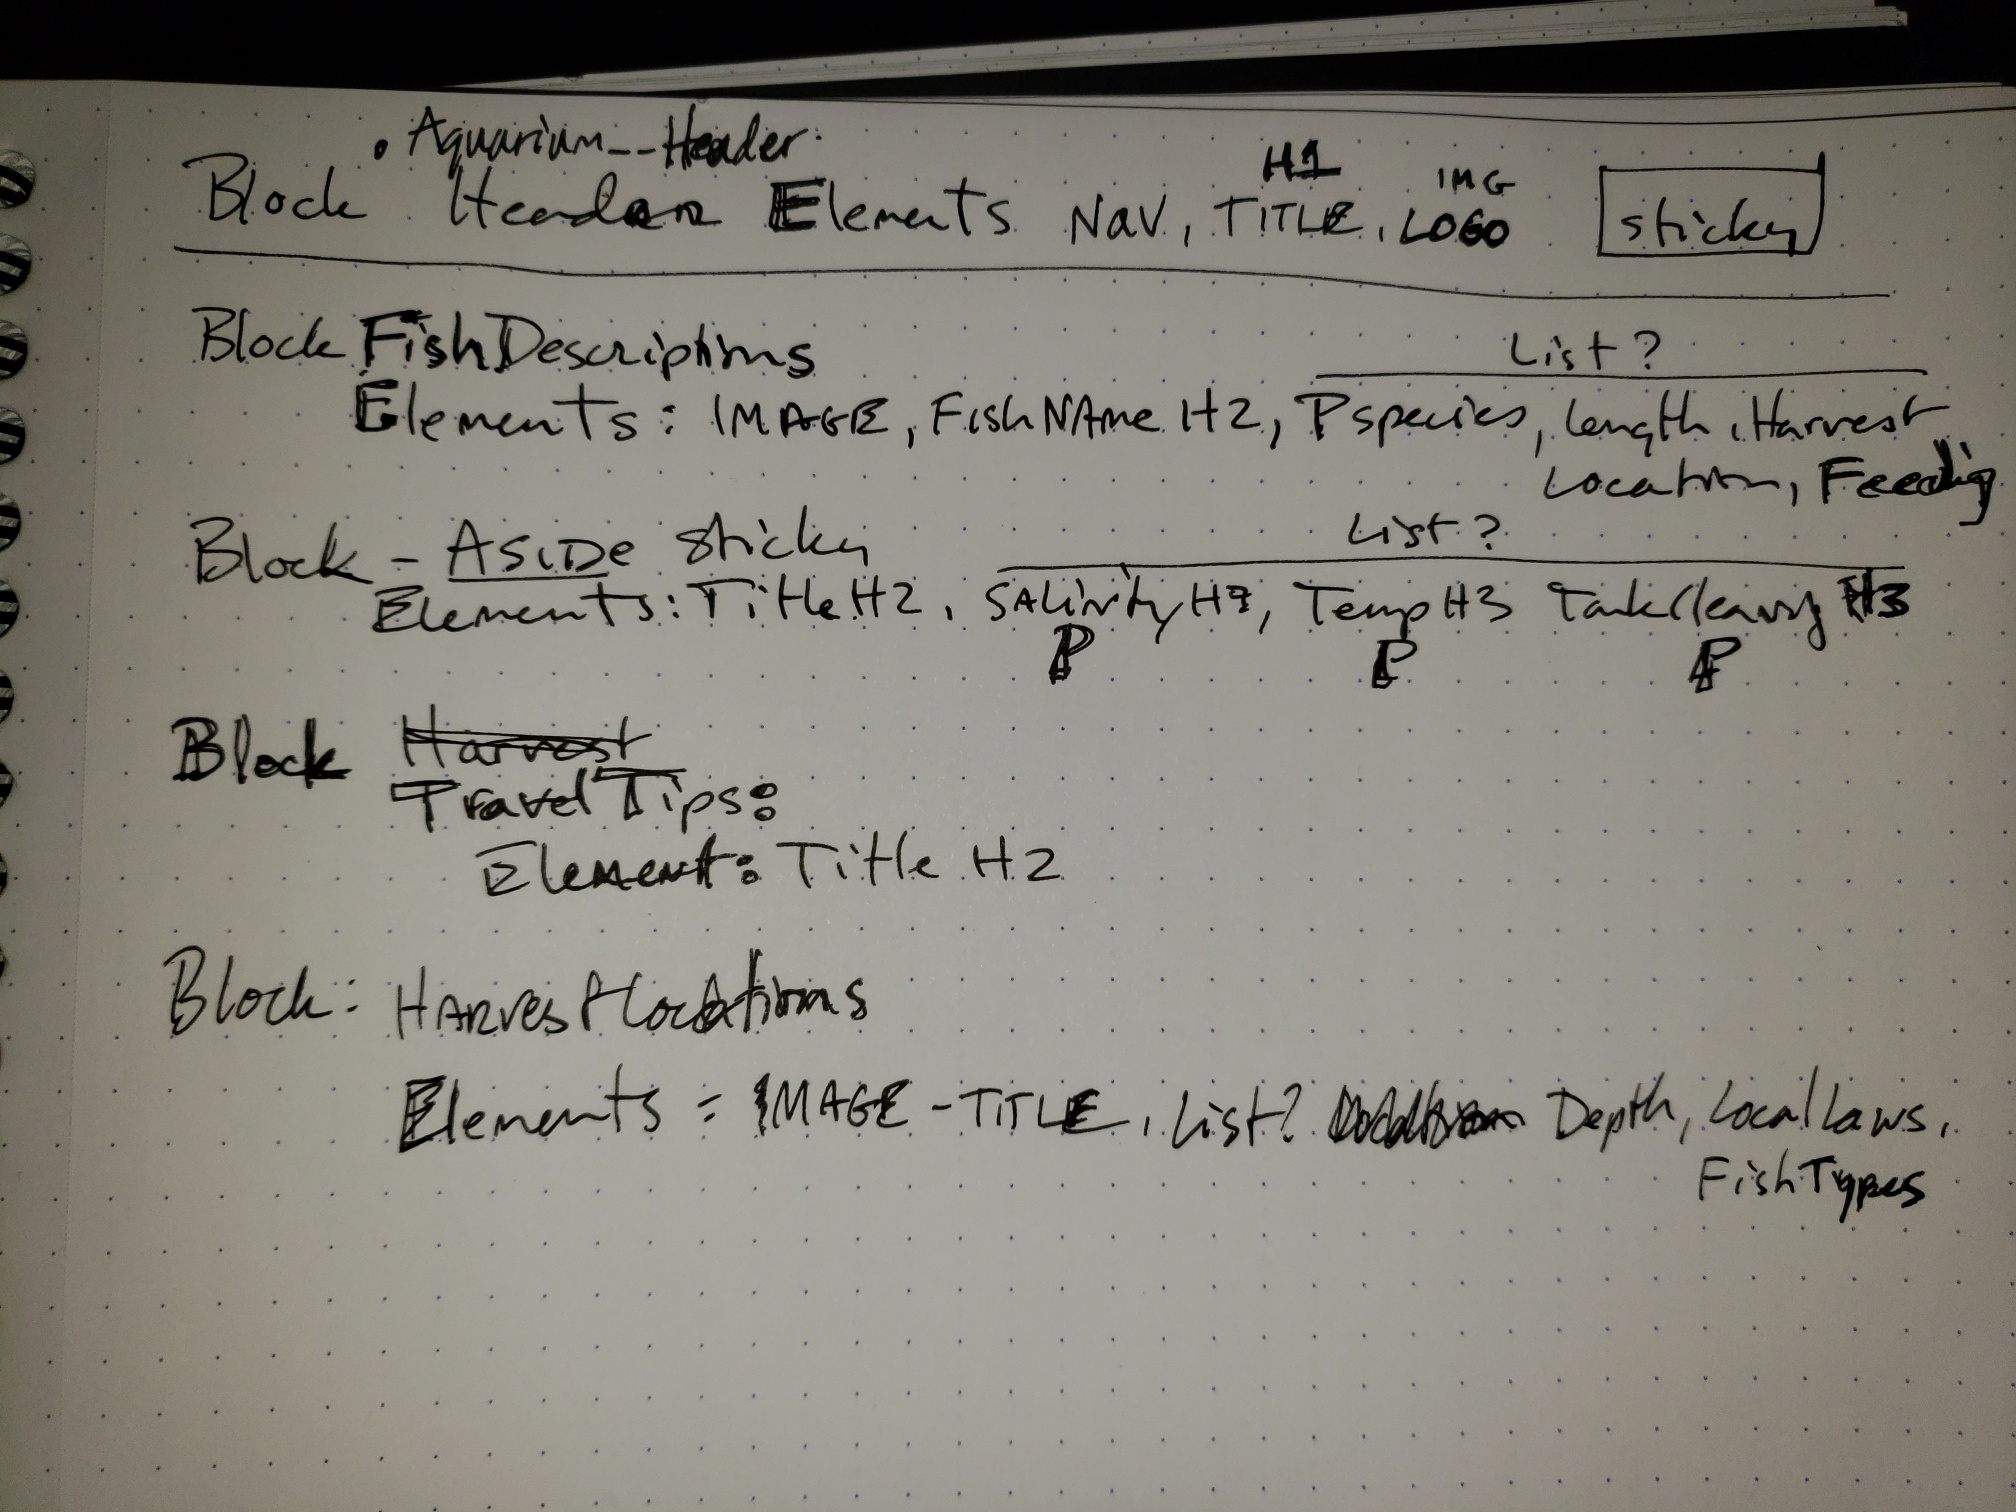 . Aquarium__Header.
H1 IMG
Block Header Elements Nav, TITLE, LOGO sticky
Block FishDescriptions List?
Elements: IMAGE, FishNAme H2, P species, length, Harvest
Location, Feeding
Block - ASIDE sticky List?
Elements: Title H2, SAlinity H3, Temp H3 TankCleaning H3
P P P
Block Harvest
Travel Tips:
Element: Title H2
Block: HARvestLocations
Elements = IMAGE - TITLE, List? Depth, LocalLaws,
FishTypes